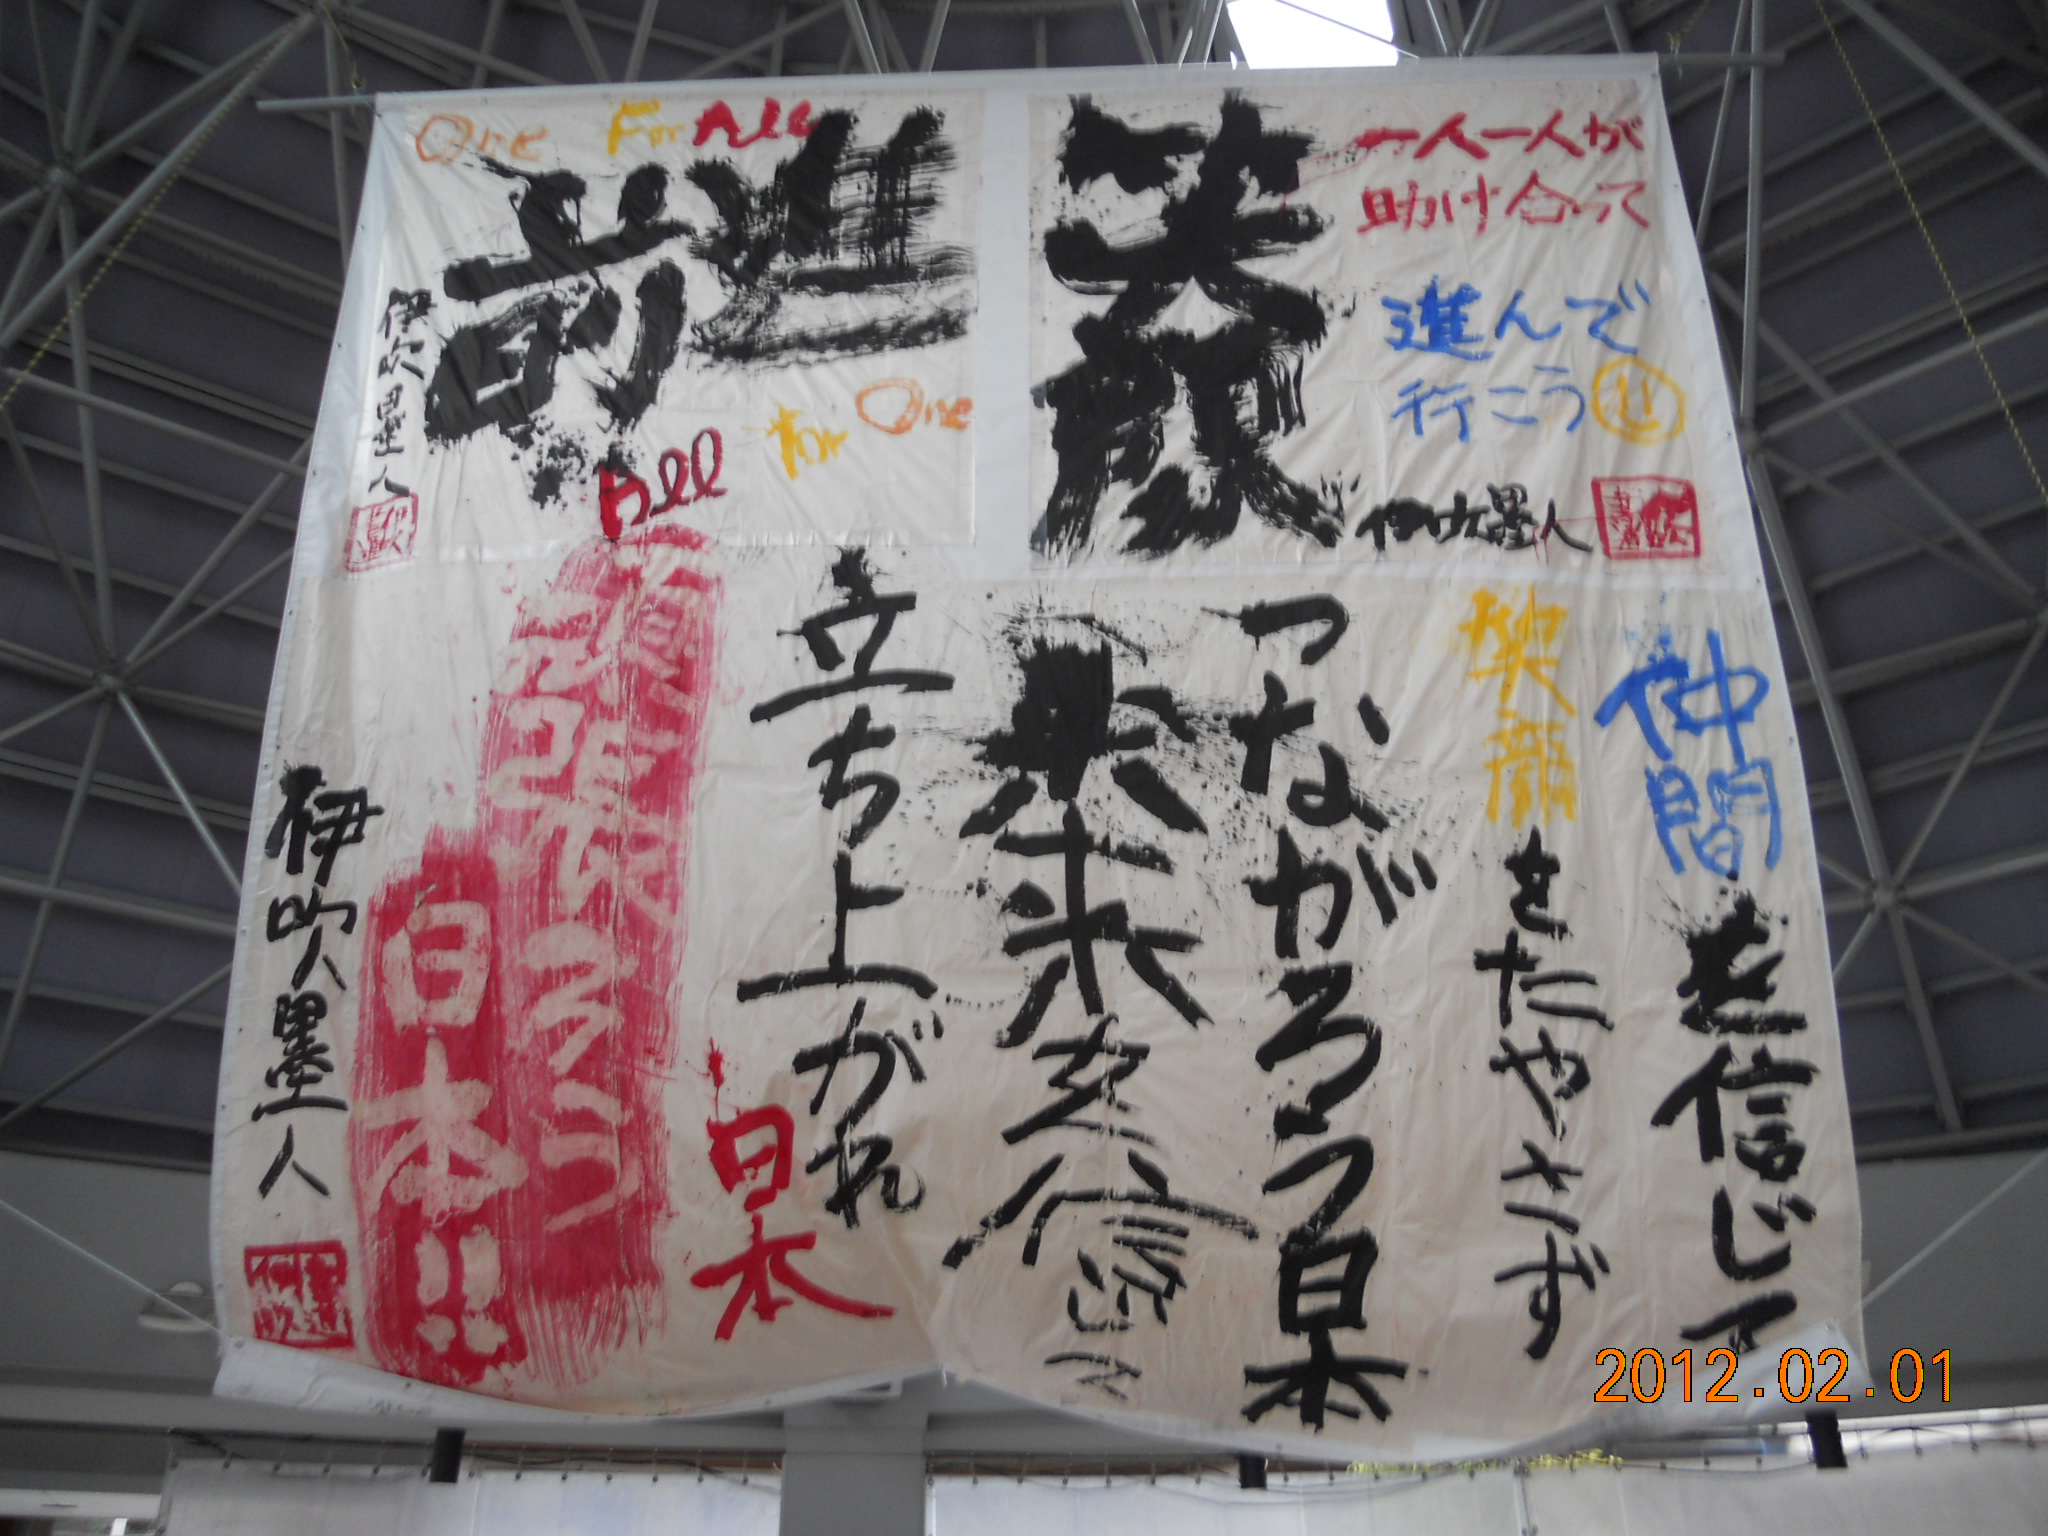 笑顔
一人一人が
助け合って
進んで
行こう
伊吹墨人
One For All
前進
All for One
伊吹墨人
仲間を信じて
笑顔をたやさず
つながろう日本
未来を信じて
立ち上がれ
日本
頑張ろう
日本!!
伊吹墨人
2012.02.01